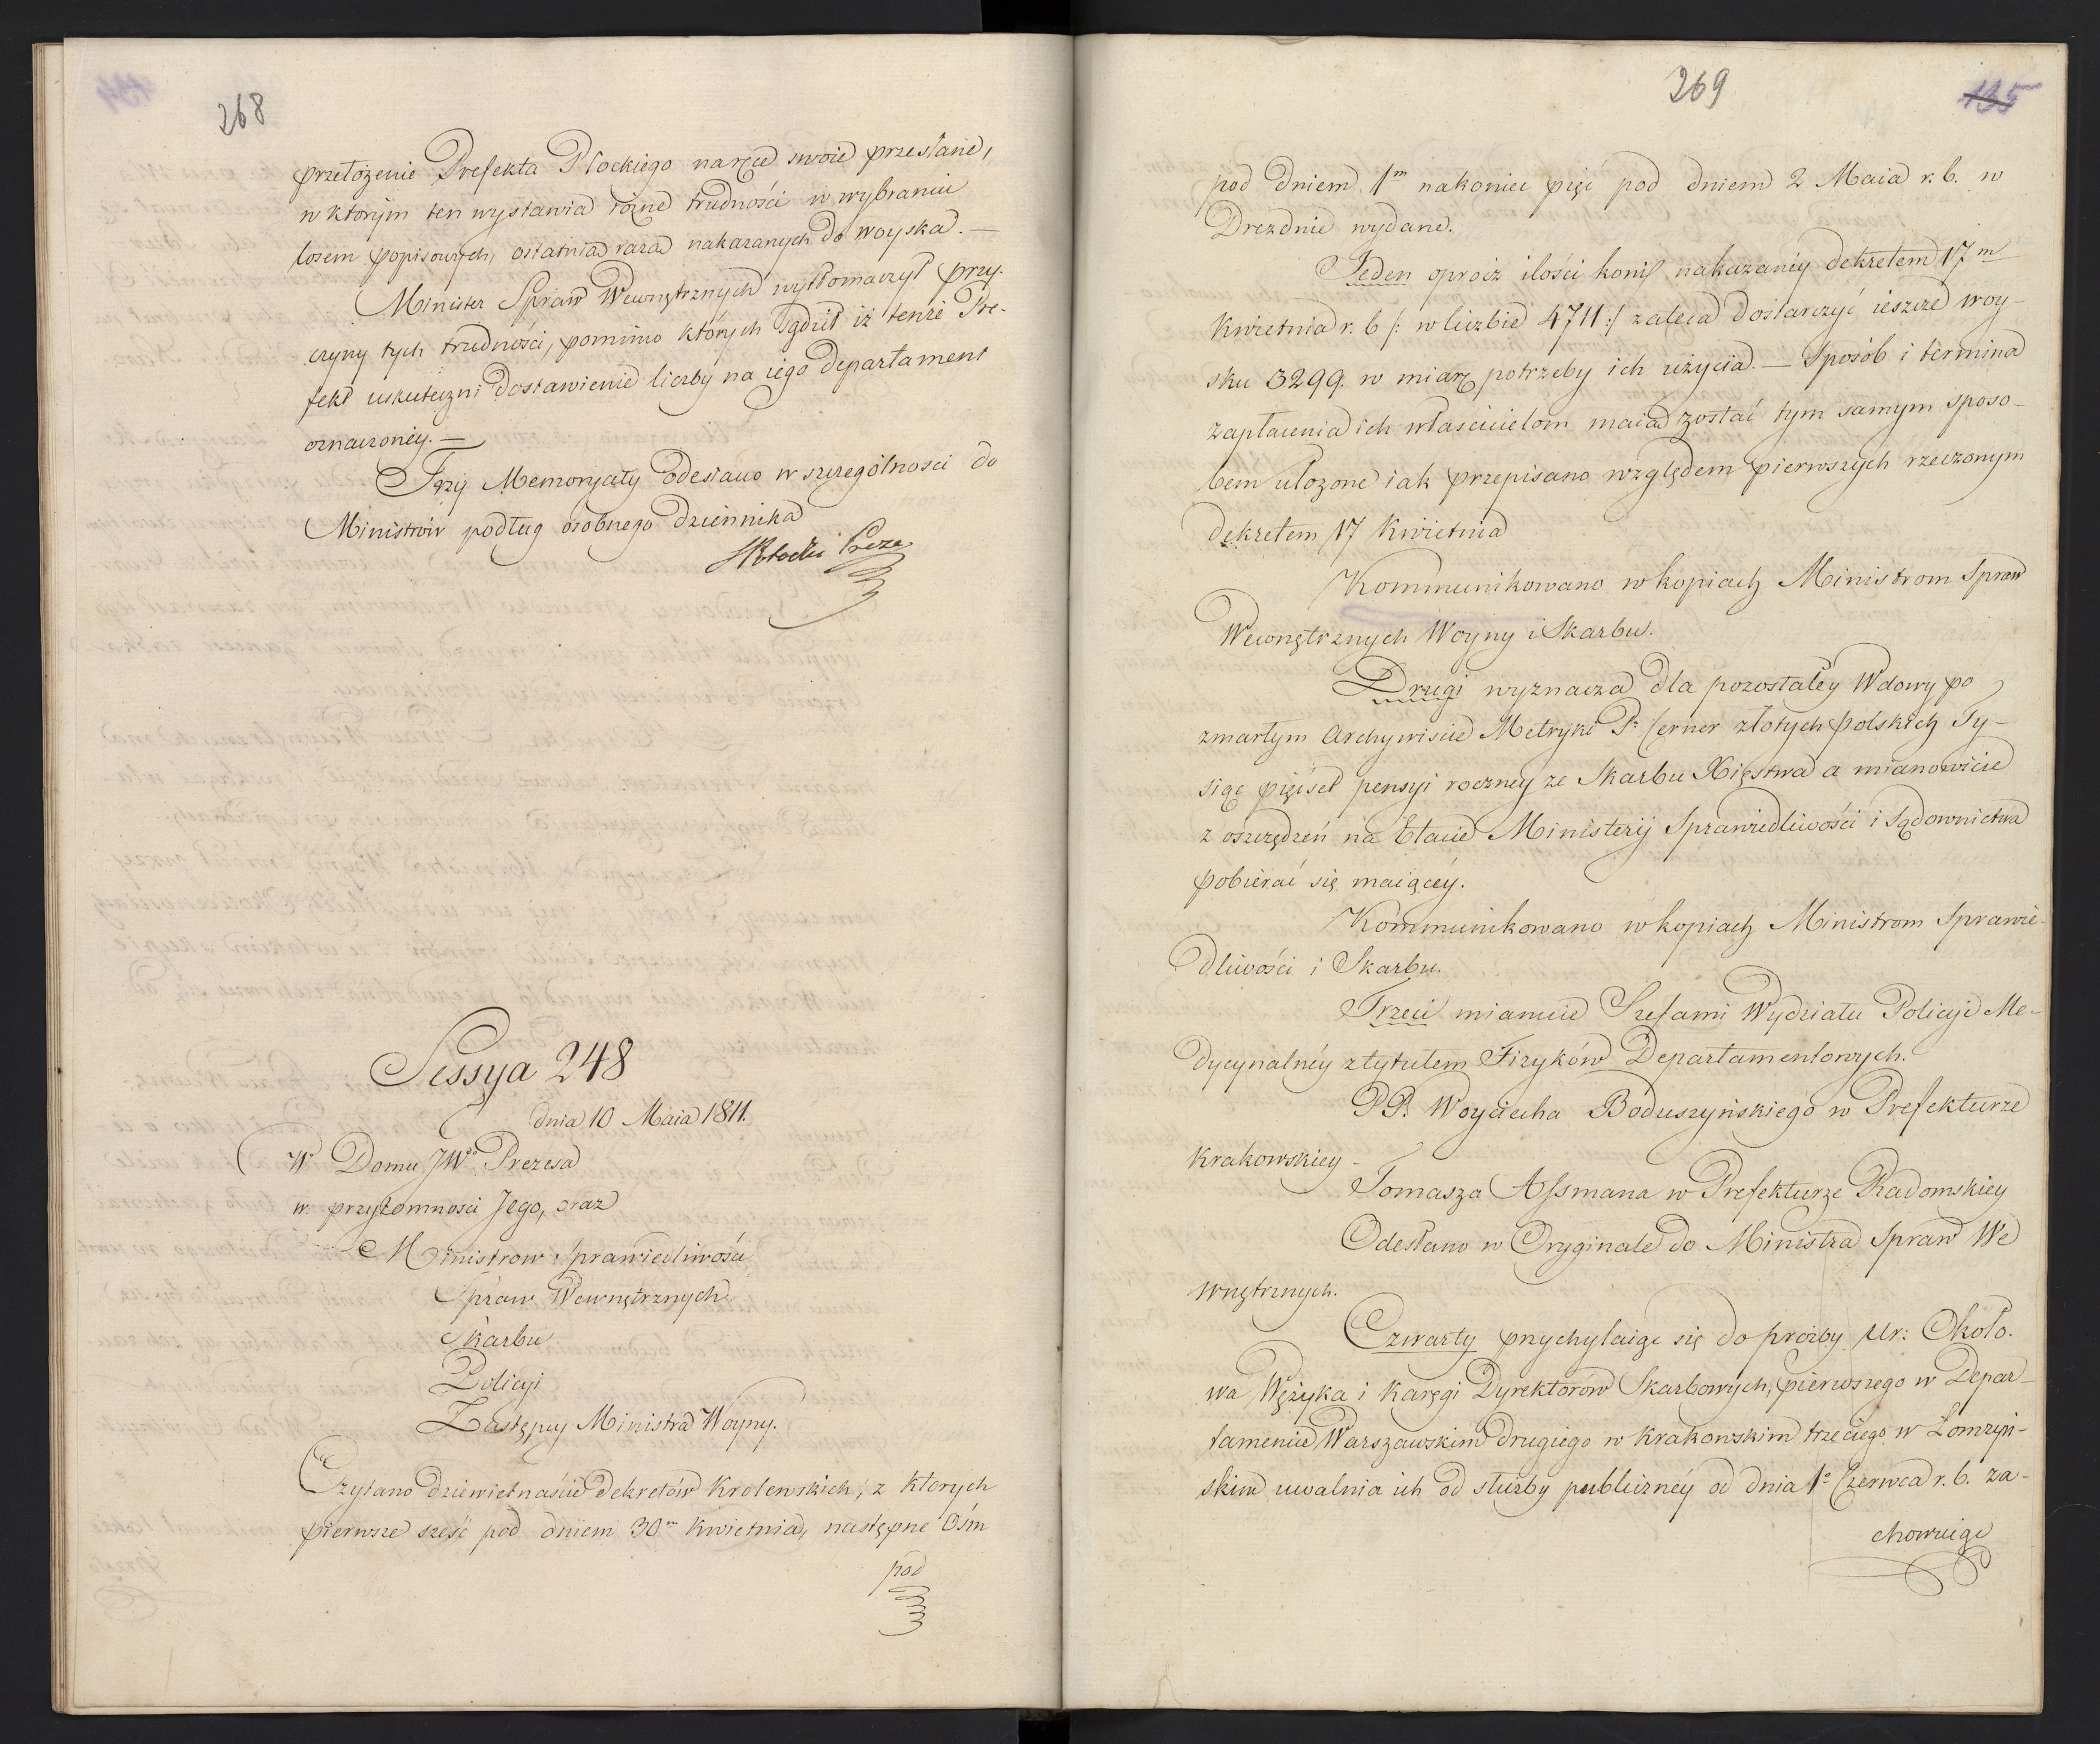 268
przełożenie Prefekta Płockiego na ręce swoie przesłane,
w którym ten wystawia rożne trudności w wybraniu
losem popisowych, ostatnią razą nakazanych do woyska. —
Minister Spraw Wewnętrznych wytłomaczył przy-
czyny tych trudności, pomimo których sądził iż tenże Pre-
fekt uskuteczni dostawienie liczby na iego departament
oznaczoney. —
Trzy Memoryały odesłano w szczególnosci do
Ministrów podług osobnego dziennika
Sessya 248
dnia 10 Maia 1811.
W Domu JWo Prezesa
w przytomnosci Jego, oraz
Ministrow Sprawiedliwości
Spraw Wewnętrznych
Skarbu
Policyi
Zastępcy Ministra Woyny.
Czytano dziewietnaście dekretów Krolewskich, z ktorych
pierwsze sześć pod dniem 30m Kwietnia, następne Ośm
pod
269
135
pod dniem 1m nakoniec pięć pod dniem 2 Maia r. b. w
Dreznie wydane.
Jeden oprócz ilości koni nakazanéy dekretem 17m
Kwietnia r. b /: w liczbie 4711 :/ zaleca dostarczyć ieszcze woy-
sku 3299. w miarę potrzeby ich użycia. — Sposób i termina
zapłacenia ich właścicielom maią zostać tym samym sposo-
bem ułożone iak przepisano względem pierwszych rzeczonym
dekretem 17 Kwietnia
Kommunikowano w kopiach Ministrom Spraw
Wewnętrznych Woyny i Skarbu.
Drugi wyznacza dla pozostałey Wdowy po
zmarłym Archywiście Metryki P: Cerner złotych polskich Ty-
siąc pięćset pensyi roczney ze Skarbu Xięstwa a mianowicie
z oszczędzeń na Etacie Ministeryi Sprawiedliwości i Sądownictwa
pobiérać się maiącéy.
Kommunikowano w kopiach Ministrom Sprawie-
dliwości i Skarbu.
Trzeci mianuie Szefami Wydziału Policyi Me-
dycynalnéy z tytułem Fizyków Departamentowych.
PP. Woyciecha Boduszyńskiego w Prefekturze
Krakowskiey -
Tomasza Assmana w Prefekturze Radomskiey
Odesłano w Oryginale do Ministra Spraw We
wnętrznych.
Czwarty przychylaiąc się do prózby Ur: Około-
wa Wężyka i Karęgi Dyrektorów Skarbowych, pierwszego w Depar-
tamencie Warszawskim drugiego w Krakowskim trzeciego w Łomżyń-
skim uwalnia ich od służby publicznéy od dnia 1o Czerwca r. b. za-
chowuiąc